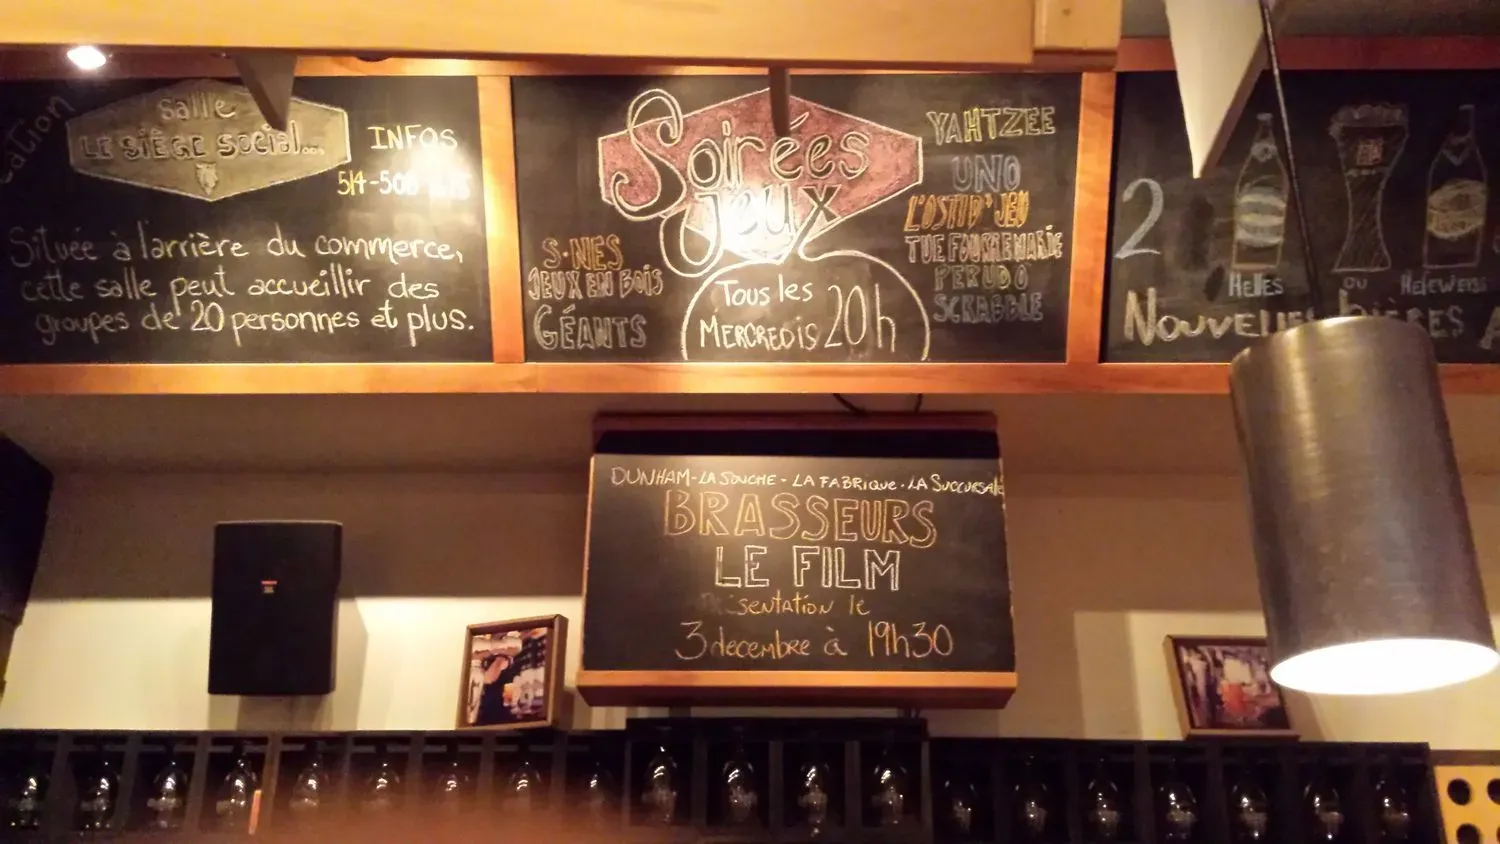 Salle
LE SIÈGE SOCIAL...
INFOS
Située à larrière du commerce,
cette salle peut accueillir des
groupes de 20 personnes et plus.
Soirées
jeux
Tous les
MERCREDIS 20h
S-NES
JEUX EN BOIS
GÉANTS
YAHTZEE
UNO
L'OSTID'JEU
TUE FOURRE MARIE
PERUDO
SCRABBLE
2
Helles
ou
NOUVELLES BIÈRES
DUNHAM-LA SOUCHE-LA FABRIQUE-LA SUCCURSALE
BRASSEURS
LE FILM
Présentation le
3 decembre à 19h30